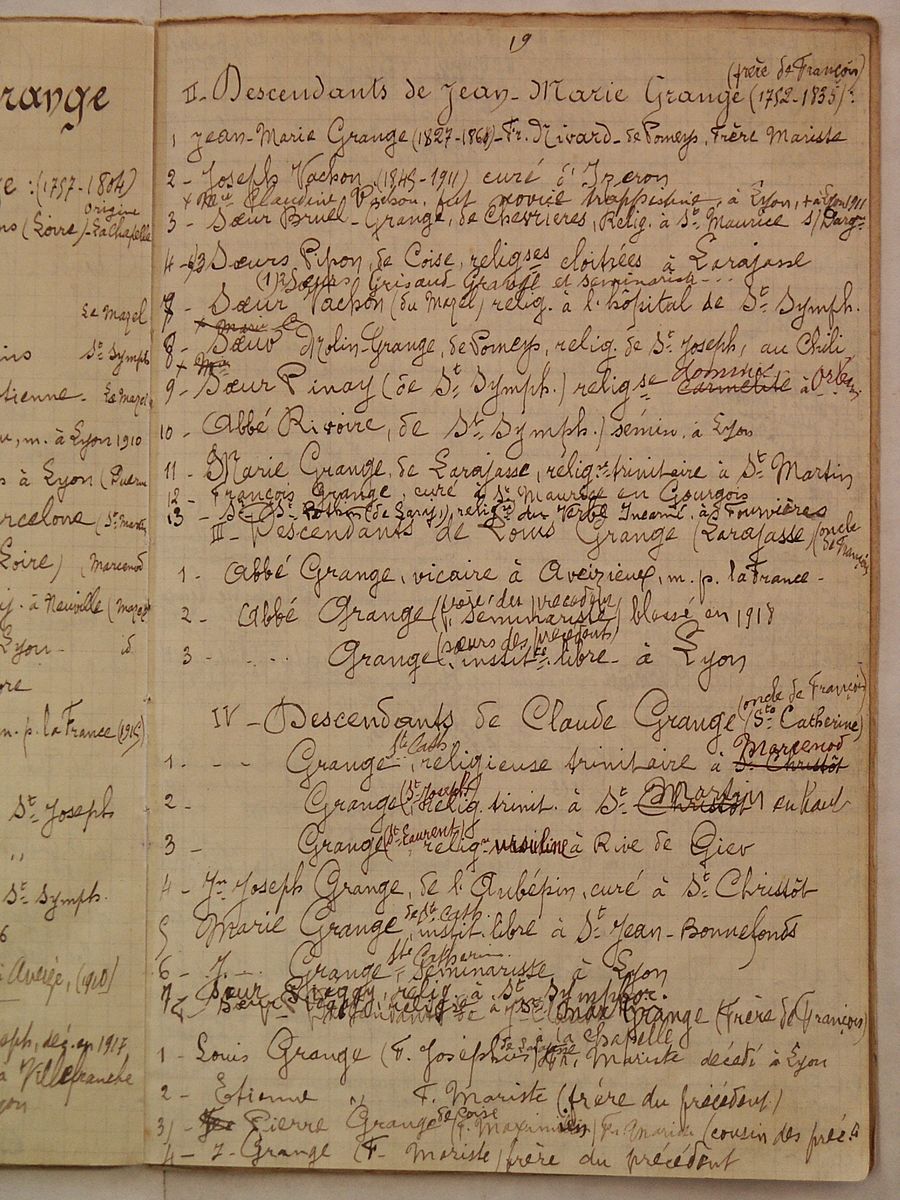 range
: (1757-1804)
Origine
(Loire) - Lachapelle
Le Mazel
St Symph
tienne - Le Mazel
m. à Lyon 1910
à Lyon
arcelone (St Martin
Loire) Marcenod
à Neuville
Lyon - id
n. p. la France (1915)
St Joseph
"
St Symph.
6
Aveize, (1920)
eph, déc. en 1917
à Villefranche
yon
19
(frère de François)
II - Descendants de Jean-Marie Grange (1752-1835)
1 Jean-Marie Grange (1827-1868) - Fr. Nivard - de Pomeys, Frère Mariste
2 - Joseph Vachon (1845-1911) curé d'Izeron
Claudine Vachon, fut novice trappestine, à Lyon, + à Lyon 1911
3 - Sœur Bruel-Grange, de Chevrières, Relig. à St Maurice s/ Darg.
4 - 6/3 Sœurs Pipon, de Coise, religses cloitrées à Larajasse
(1) Sœurs Grisaud Grange et seminariste ...
7 - Sœur Vachon (du Mazel) relig. à l'hôpital de St Symph.
8 - Sœur Molin-Grange, de Pomeys, relig. de St Joseph, au Chili
9 - Sœur Pinay (de St Symph.) religse domin. carmélite à
10 - Abbé Rivoire, de St Symph.) sémin. à Lyon
11 - Marie Grange, de Larajasse, religse trinitaire à St Martin
12 - François Grange, curé à St Maurice en Gourgois
13 - (de Laraj.), relig. du Verbe Incarné, à Fourvières
III - Descendants de Louis Grange (Larajasse) (oncle de François)
1 - Abbé Grange, vicaire à Aveizieux, m. p. la France -
2 - Abbé Grange (frère du précédent, séminariste) blessé en 1918
3 - .... Grange (sœurs des précédents) instit. libre - à Lyon
IV - Descendants de Claude Grange (oncle de François) (Ste Catherine)
1. - - Grange Ste Cath., religieuse trinitaire à St Christôt Marcenod
2 - Grange (St Joseph) relig. trinit. à St Christôt Martin en haut
3 - Grange (St Laurent), relig. ursuline à Rive de Gier
4 - Jn Joseph Grange, de l'Aubépin, curé à St Christôt
5 Marie Grange, de Ste Cath. instit. libre à St Jean-Bonnefonds
6 - J. ... Grange - Ste Catherine séminariste à Lyon
7 - Sœur relig. à St Symphor.
Descendants de Grange (Frère de François)
1 - Louis Grange (F. la Chapelle Mariste décédé à Lyon
2 - Etienne " F. Mariste (frère du précédent)
3) - Pierre Grange de Coise (F. Maximien) F. Mariste (cousin des préc.
4 - J. Grange (F. Mariste) frère du précédent